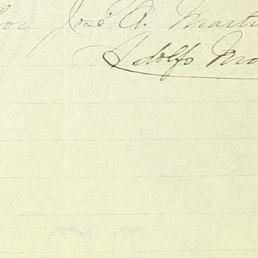 por José A. Marti
Adolfo Mo